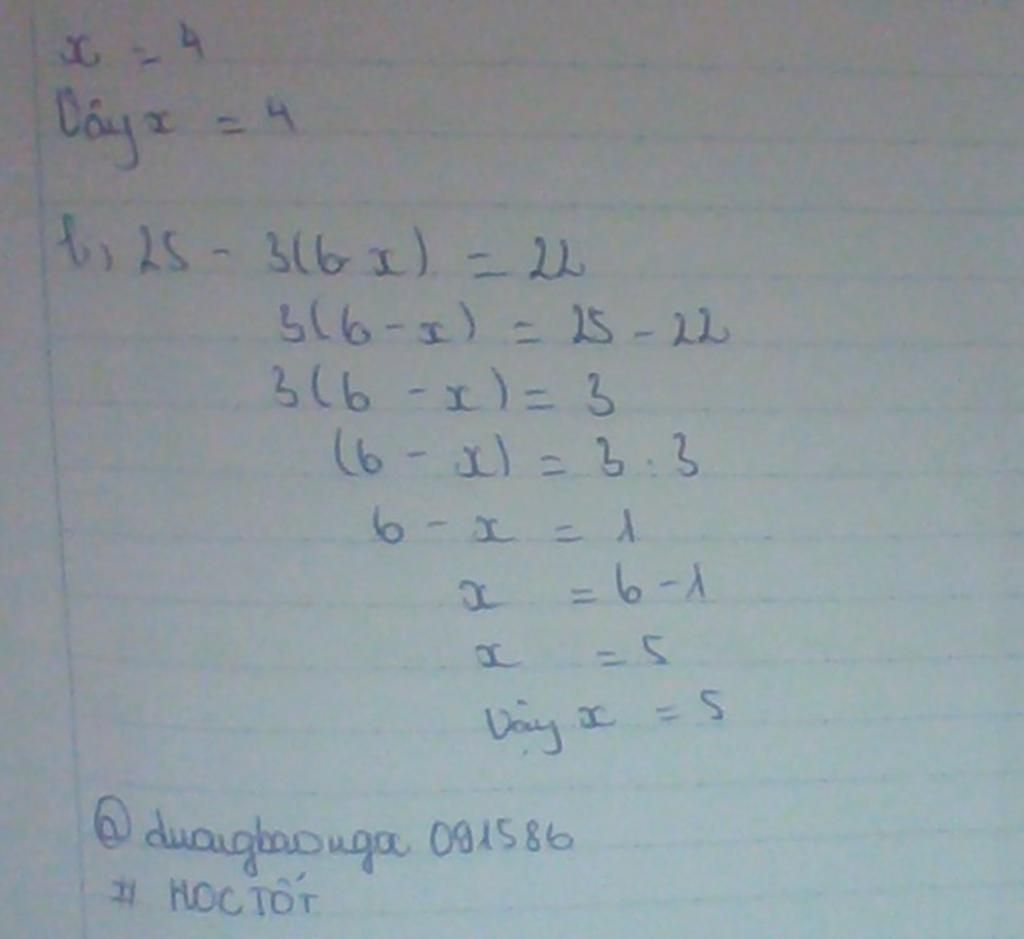 x = 4
Vây x = 4
b, 25 - 3(6 x) = 22
3(6 - x) = 25 - 22
3(6 - x) = 3
(6 - x) = 3 : 3
6 - x = 1
x = 6 - 1
x = 5
Vậy x = 5
@ duongbaonga 091586
# HOC TỐT